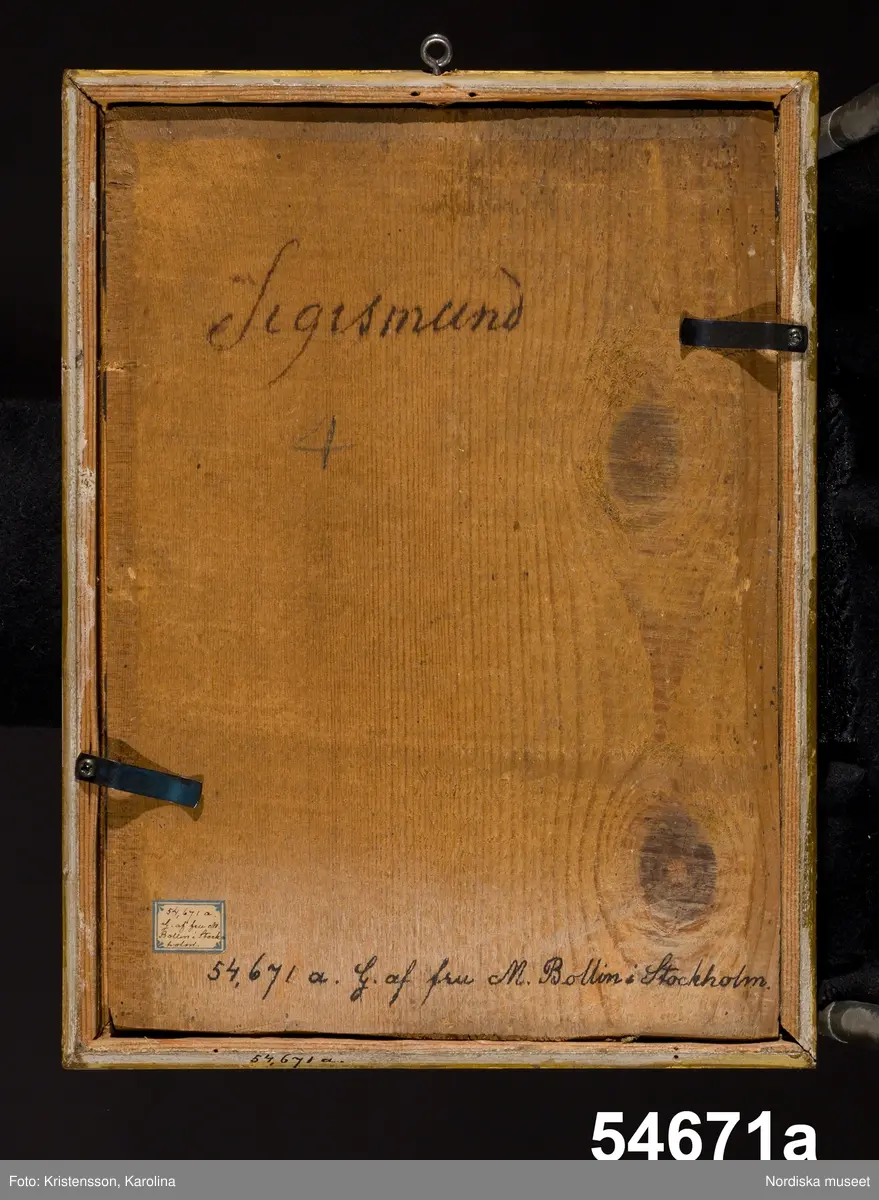 Sigismund
4
54,671 a.
G. af fru M.
Bollin i Stock-
holm.
54,671 a. G. af fru M. Bollin i Stockholm.
54,671 a.
54671a
Foto: Kristensson, Karolina
Nordiska museet